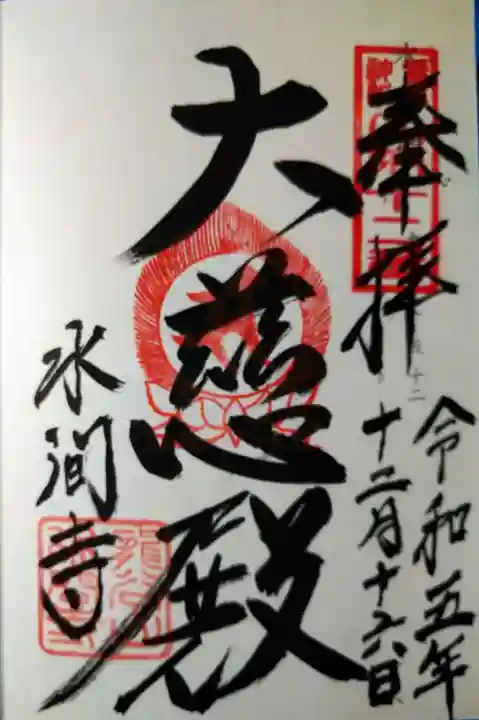 奉拝
令和五年
十二月十六日
大慈殿
水間寺